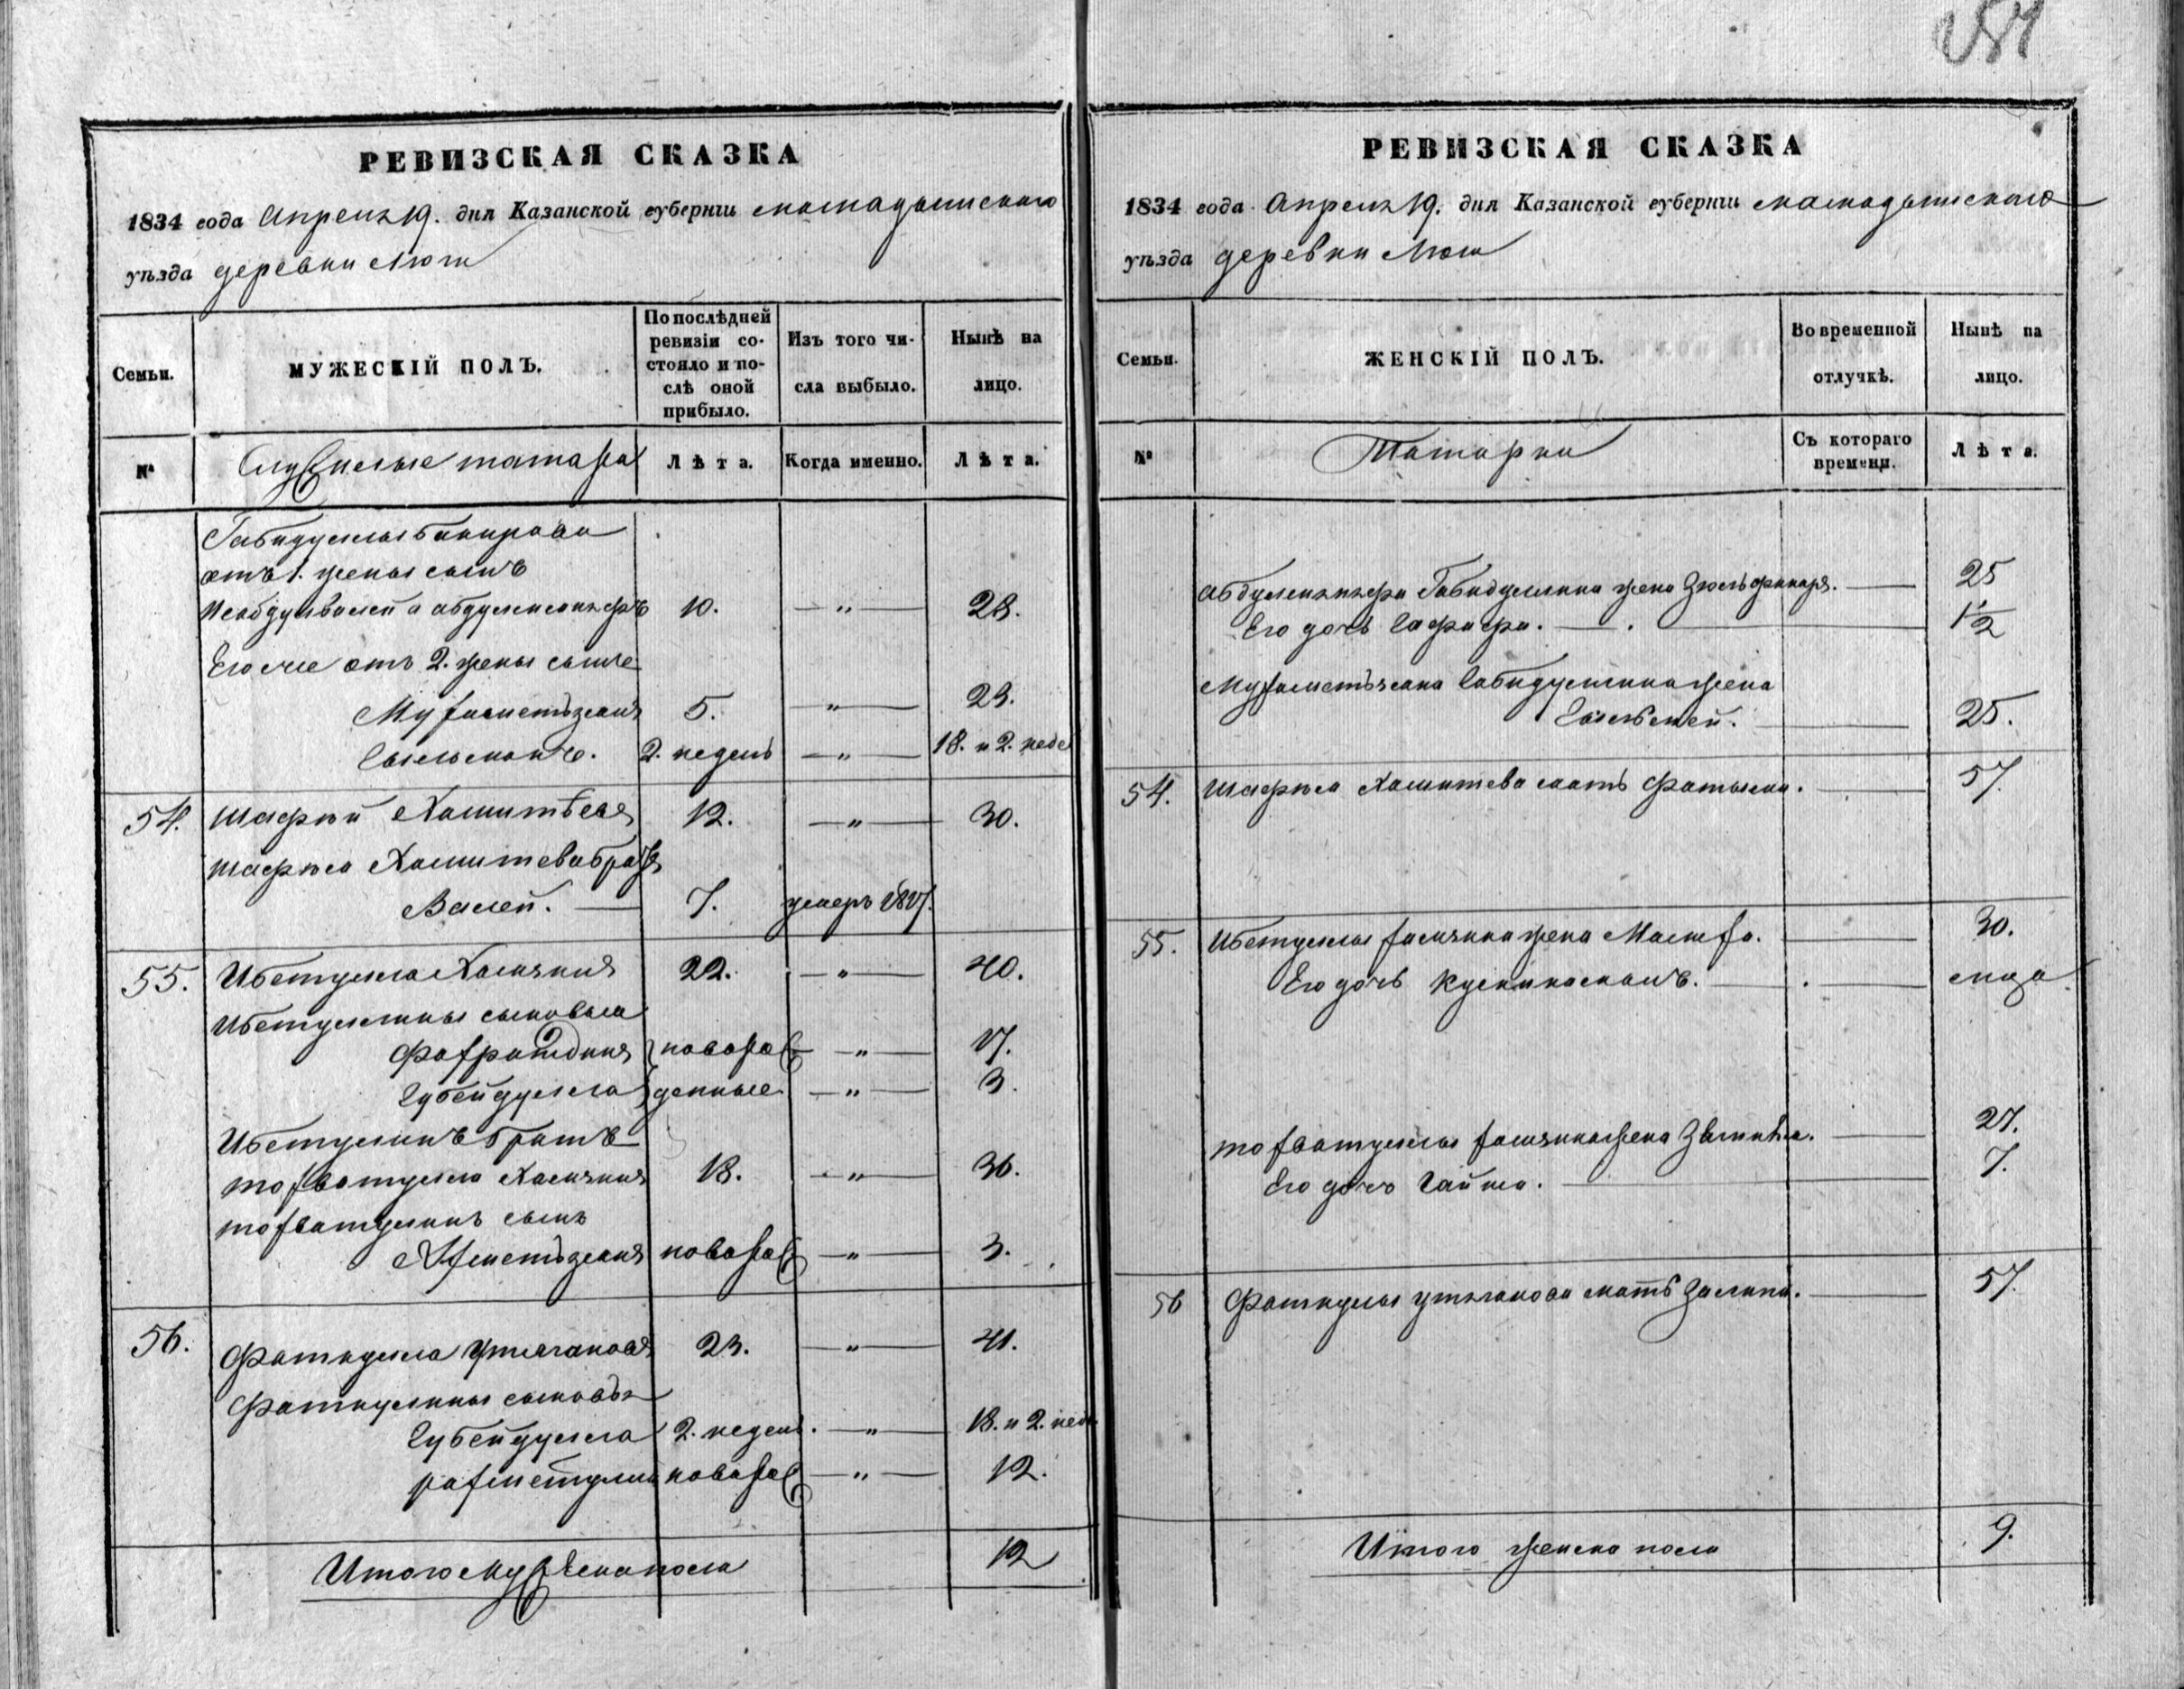 РЕВИЗСКАЯ СКАЗКА
1834 года Апреля 19. дня Казанской губернiи мамадышскаго
уѣзда деревни Люш
Семьи.
МУЖЕСКIЙ ПОЛЪ.
По послѣдней
ревизiи со-
стояло и по-
слѣ оной
прибыло.
Изъ того чи-
сла выбыло.
Нынѣ на
лицо.
№
Служилые татара
Лѣта.
Когда именно.
Лѣта.
Габидуллы бакирова
отъ 1. жены сынъ
10. — " — 28.
Его же отъ 2. жены сынъ
Мухаметьзянъ 5. — " — 23.
2. недель — " — 18. и 2. неде
54. Шафѣй Хамитѣевъ 12. — " — 30.
Шафѣя Хамитева братъ
Валей. — 7. умеръ 1827.
55. Ибетулла Халянинъ 22. — " — 40.
Ибетуллины сыновья
новорож — " — 17.
Губейдулла денные — " — 3.
Ибетуллинъ братъ
тохватулла 18. — " — 36.
тохватуллинъ сынъ
Ахметьзянъ новорож — " — 3.
56. Фаткулла Утягановъ 23. — " — 41.
Фаткуллины сыновья
Губейдулла 2. недель. — " — 18. и 2. неде
рахметулла новорож — " — 12.
Итого мужеска пола 12
РЕВИЗСКАЯ СКАЗКА
1834 года Апреля 19. дня Казанской губернiи мамадышскаго
уѣзда деревни Люш
Семьи.
ЖЕНСКIЙ ПОЛЪ.
Во временной
отлучкѣ.
Нынѣ на
лицо.
№
Татарки
Съ котораго
времени.
Лѣта.
Габидуллина жена — 25
Его дочь — 1½
Мухаметьзяна Габидуллина жена
— 25.
54. Шафѣя Хамитева мать Фатыма. — 57.
55. Ибетуллы жена — 30.
Его дочь —
тохватуллы жена — 27.
Его дочь Гайша. — 7.
56 Фаткуллы утяганова мать — 57.
Итого женска пола 9.